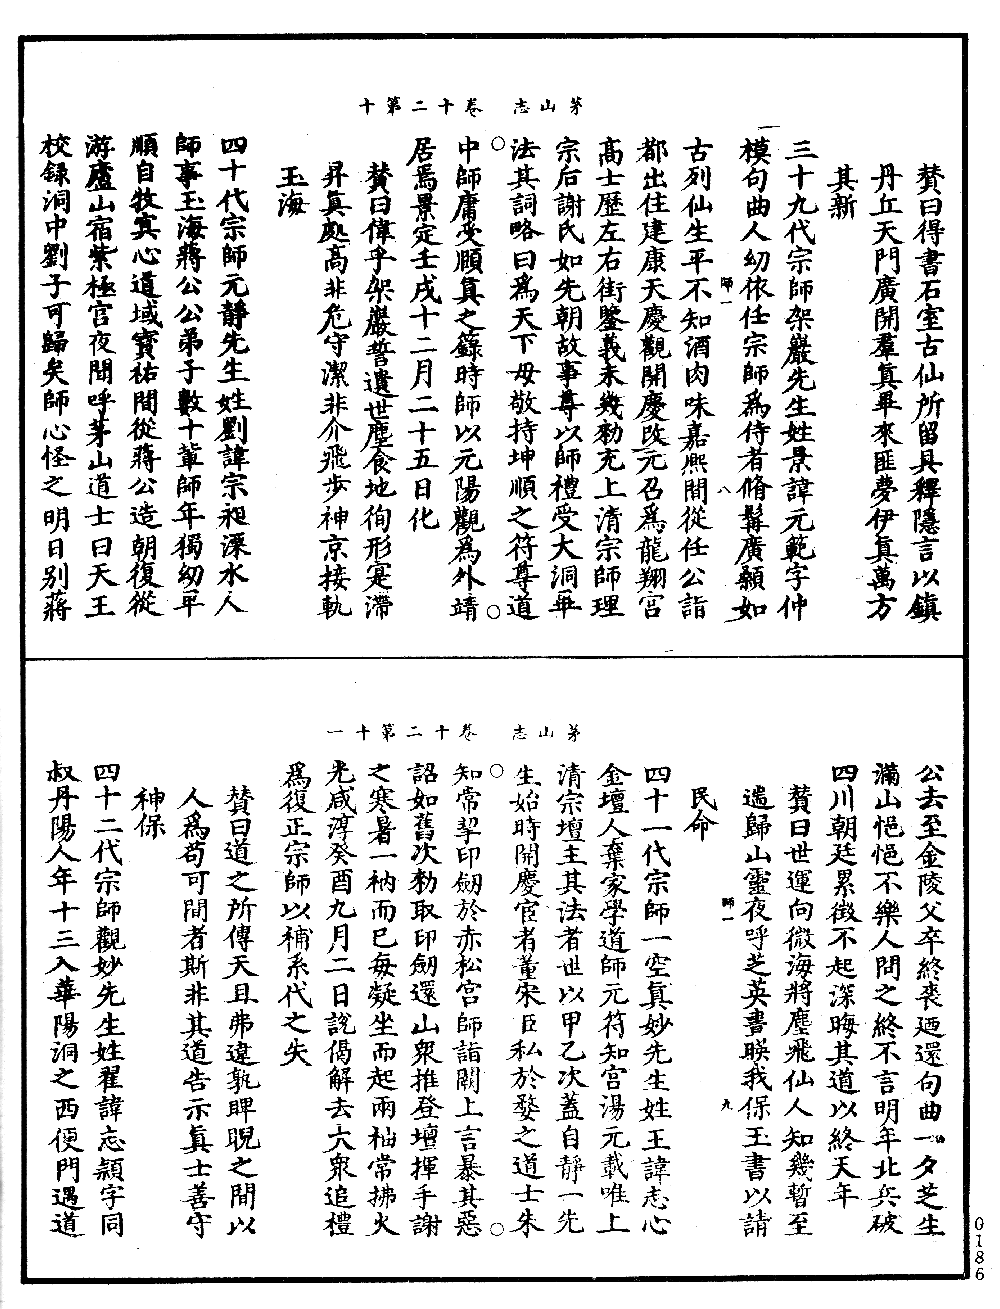 茅山志　卷十二第十
賛曰得書石室古仙所留具釋隱言以鎮
丹丘天門廣開羣真畢來匪夢伊真萬方
其新
三十九代宗師架巖先生姓景諱元範字仲
模句曲人幼依任宗師爲侍者脩髯廣顙如
師一
八
古列仙生平不知酒肉味嘉熙間從任公詣
都出住建康天慶觀開慶改元召爲龍翔宮
高士歷左右街鑒義未幾勑充上清宗師理
宗后謝氏如先朝故事尊以師禮受大洞畢
法其詞略曰爲天下母敬持坤順之符尊道
中師庸受頤真之籙時師以元陽觀爲外靖
居焉景定壬戌十二月二十五日化
賛曰偉乎架巖誓遺世塵食地徇形寔滯
昇真処高非危守潔非介飛步神京接軌
玉海
四十代宗師元靜先生姓劉諱宗昶溧水人
師事玉海蔣公公弟子數十輩師年獨幼平
順自牧寘心道域寳祐間從蔣公造朝復從
游廬山宿紫極宮夜聞呼茅山道士曰天王
校録洞中劉子可歸矣師心怪之明日别蔣
茅山志　卷十二第十一
公去至金陵父卒終喪廼還句曲一夕芝生
滿山悒悒不樂人問之終不言明年北兵破
四川朝廷累徴不起深晦其道以終天年
賛曰世運向微海將塵飛仙人知幾暫至
遄歸山靈夜呼芝英書联我保玉書以請
師一
九
民命
四十一代宗師一空真妙先生姓王諱志心
金壇人棄家學道師元符知宮湯元載唯上
清宗壇主其法者世以甲乙次蓋自靜一先
生始時開慶宦者董宋臣私於婺之道士朱
知常挈印劒於赤松宮師詣闕上言暴其惡
詔如舊次勑取印劒還山衆推登壇揮手謝
之寒暑一衲而已每凝坐而起兩柚常拂火
光咸淳癸酉九月二日說偈解去大衆追禮
爲復正宗師以補系代之失
賛曰道之所傳天且弗違孰睥睨之間以
人爲苟可間者斯非其道告示真士善守
神保
四十二代宗師觀妙先生姓翟諱志穎字同
叔丹陽人年十三入華陽洞之西便門遇道
0186